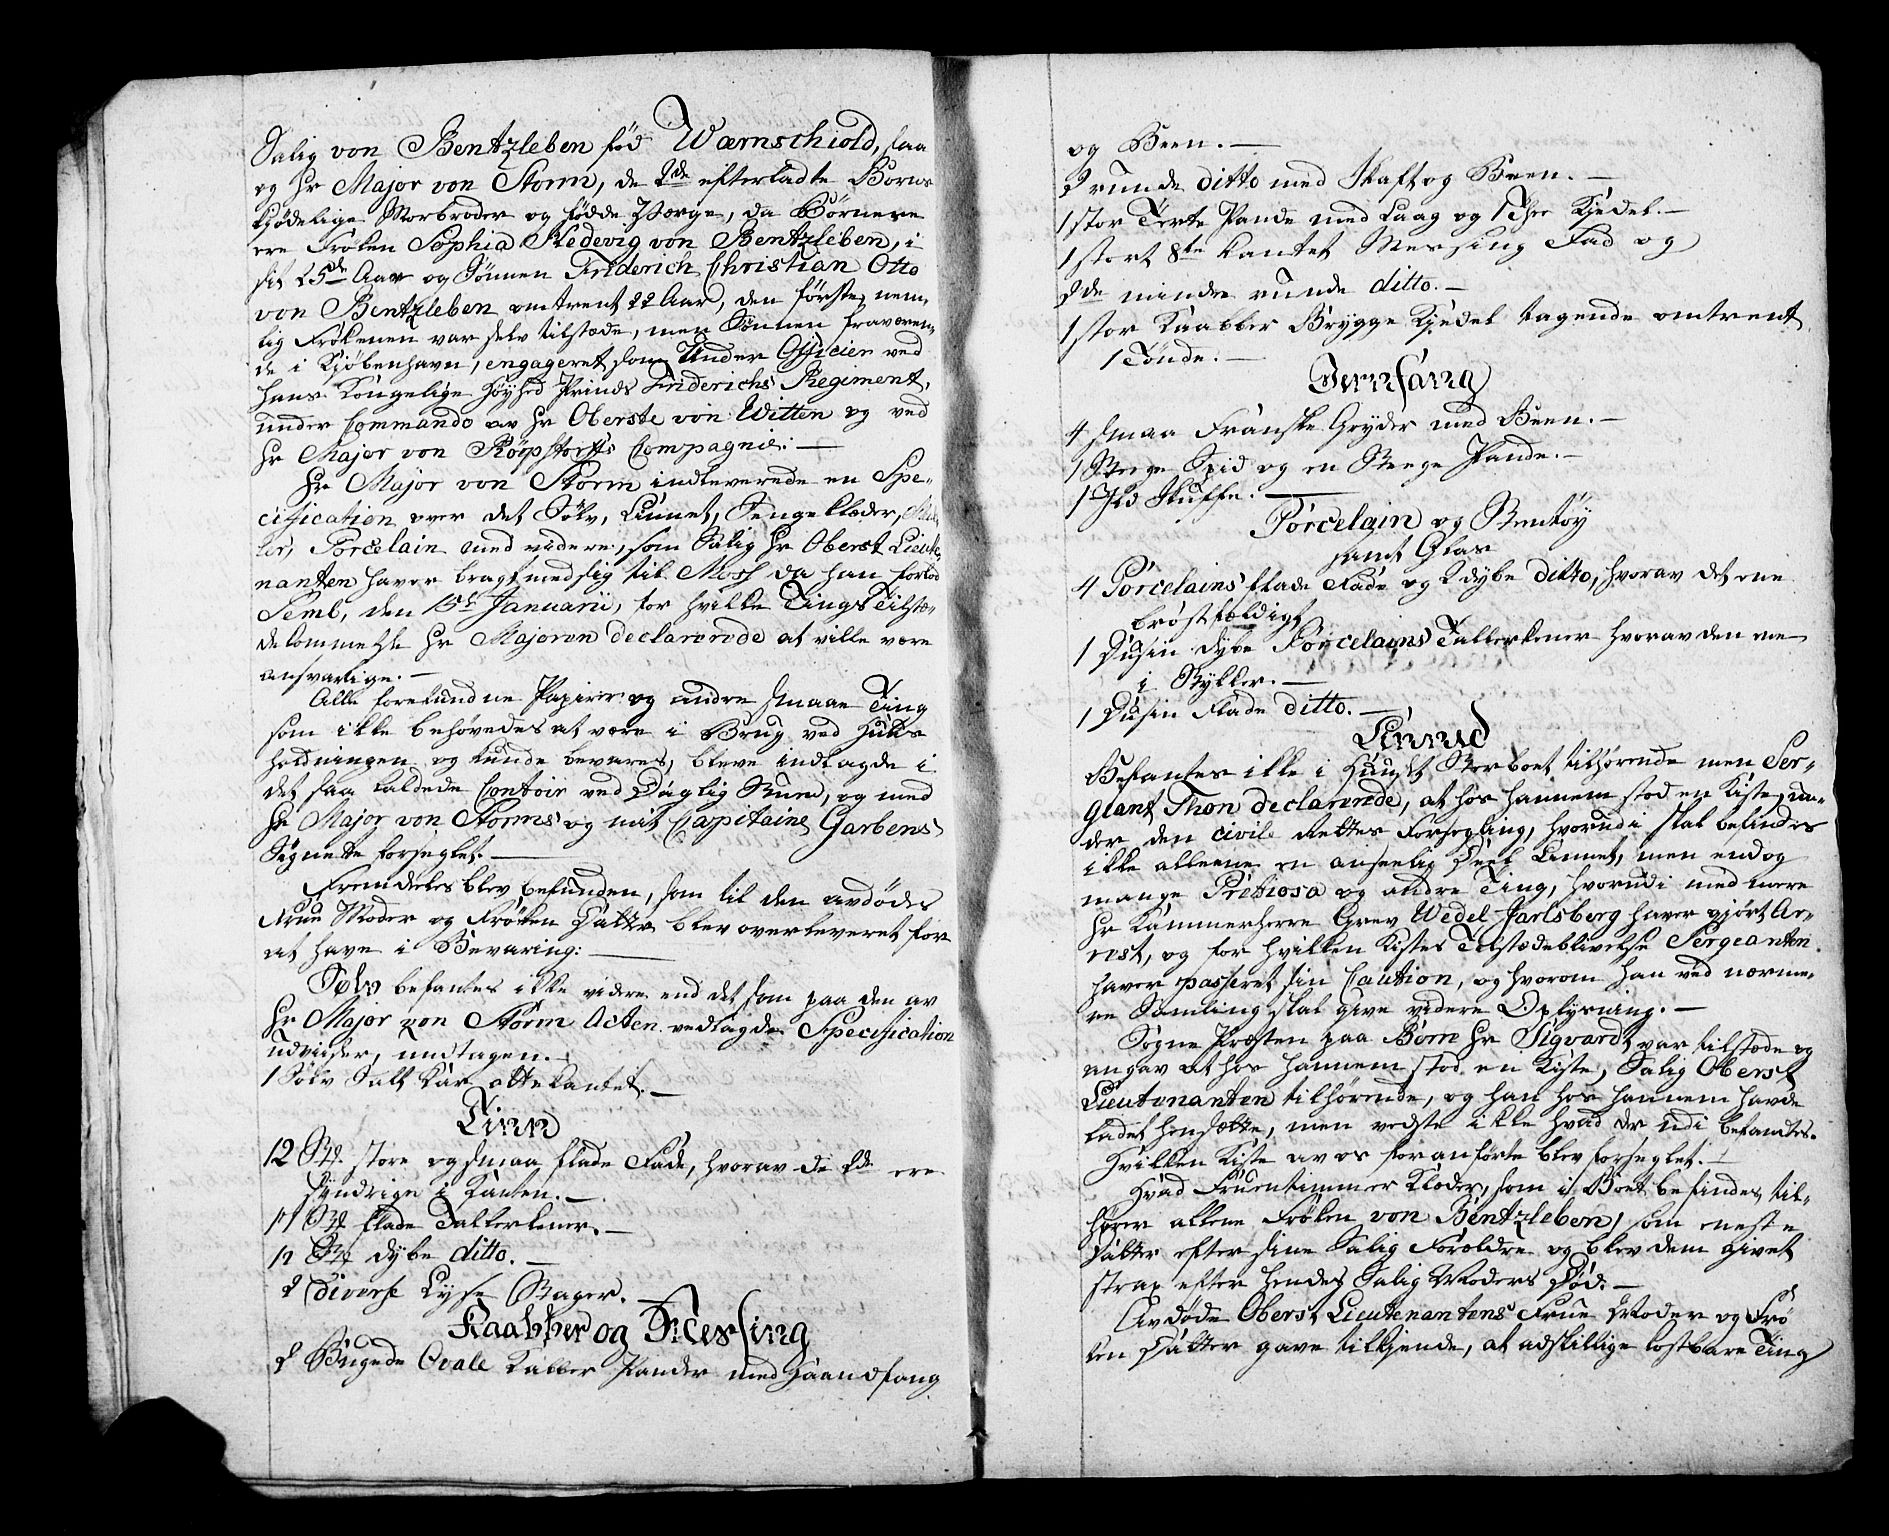 Salig von Bentzleben fød Wærnschiold, saa
og Hr Major von Storm, de 2de efterladte Børns
kiödelige Morbroder og fødde Værge, da Børnene
ere Frøken Sophia Hedevig von Bentzleben, i
sit 25de Aar og Sønnen Friderich Christian Otto
von Bentzleben omtrent 22 Aar, den første nem-
lig Frøkenen var selv tilstæde, men Sønnen fraværen-
de i Kjøbenhavn, engageret som Under Officier ved
Hans Kongelige Høyhed Prinds Friderichs Regiment,
under Commando av Hr Oberste von Witten og ved
Hr Major von Röpstorffs Compagnie: —
Hr Major von Storm indleverede en Spe-
cification over det Sølv, Linnet, Sengeklæder,
Porcelain med videre, som Salig Hr Oberst Lieute-
nanten haver bragt med sig til Moss da han forlod
Semb, den 15de Januarii, for hvilke Tings Tilstæ-
dekommelse Hr Majoren declarerede at ville være
ansvarlige. —
Alle forefundne Papirer og andre smaae Ting
som ikke behøvedes at være i Brug ved Huus
holdningen og kunde bevares, bleve indlagde i
det saa kaldede Contoir ved Daglig Stuen, og med
Hr Major von Storms og mit Capitaine Garbens
Signette forseglet. —
Fremdeles blev befunden, som til den avdødes
Frue Moder og Frøken Datter blev overleveret for
at have i Bevaring: —
Sølv befantes ikke videre end det som paa den av
Hr Major von Storm Acten vedlagde Specification
Udviiser, undtagen. —
1 Sølv Salt Kar ottekantet. —
Tinn
12 St. store og smaa flade Fade, hvorav de 2de ere
syndrige i Kanten. —
17 St flade Tallerkener. —
12 St dybe ditto. —
2 Diverse Lyse Stager. —
Kaabber og Messing
2 Bugede Ovale Kabber Pander med Haandfang
og Been. —
2 runde ditto med Skaft og Been. —
1 stor Terte Pande med Laag og 1 Thee Kjedel. —
1 stort 8te kantet Messing Fad og
2de mindre runde ditto. —
1 stor Kaabber Brygge Kjedel tagende omtrent
1 Tønde. —
Jernfang
4 smaa Franske Gryder med Been. —
1 Stege Spid og en Stege Pande. —
1 Ild Skuffe. —
Porcelain og Steentøy
samt Glas
4 Porcelains flade Fade og 2 dybe ditto, hvorav det ene
brøstfældigt
1 Dusin dybe Porcelains Tallerkener hvorav den ene
i Stykker. —
1 Dusin flade ditto. —
Linned
Befantes ikke i Huuset Sterboet tilhørende men Ser-
giant Thon declarerede, at hos hannem stod en Kiste, un-
der den civile Rettes Forsegling, hvorudi skal befindes
ikke alleene en anseelig Deel Linnet, men endog
mange Pretiosa og andre Ting, hvorudi med mere
Hr Kammerherre Grev Wedel-Jarlsberg haver giørt Ar-
rest, og for hvilken Kistes Tilstædeblivelse Sergeanten
haver passeret sin Caution, og hvorom han ved nærme-
re Samling skal give videre Oplysning. —
Sogne Præsten paa Borre Hr Sigvardt var tilstæde og
angav at hos hannem stod en Kiste, Salig Oberst
Lieutenanten tilhørende, og han hos hannem havde
ladet hensætte, men vedste ikke hvad der udi befandtes.
Hvilken Kiste av os foranførte blev forseglet. —
Hvad Fruentimmer Klæder, som i Boet befindes, til-
hører allene Frøken von Bentzleben, som eneste
Datter efter sine Salig Forældre og blev dem givet
strax efter hendes Salig Moders Død. —
Avdøde Oberst Lieutenantens Frue Moder og Frø
ken Datter gave tilkjende, at adskillige kostbare Ting